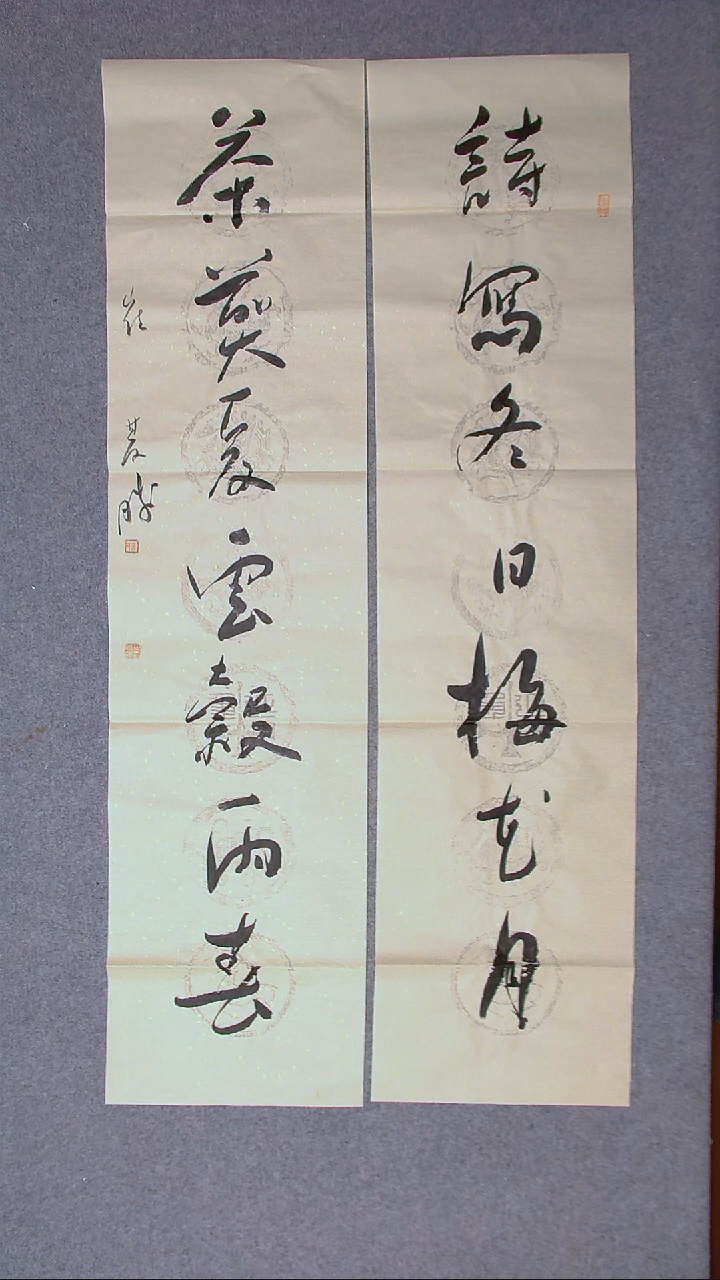 詩寫冬日梅花月
茶煑夏雲穀雨春
崔